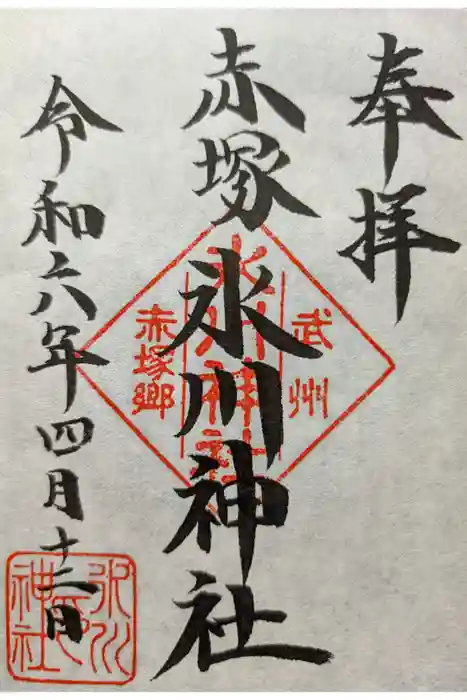 奉拝
武州
赤塚氷川神社
氷川神社
赤塚郷
令和六年四月十二日
氷川
神社